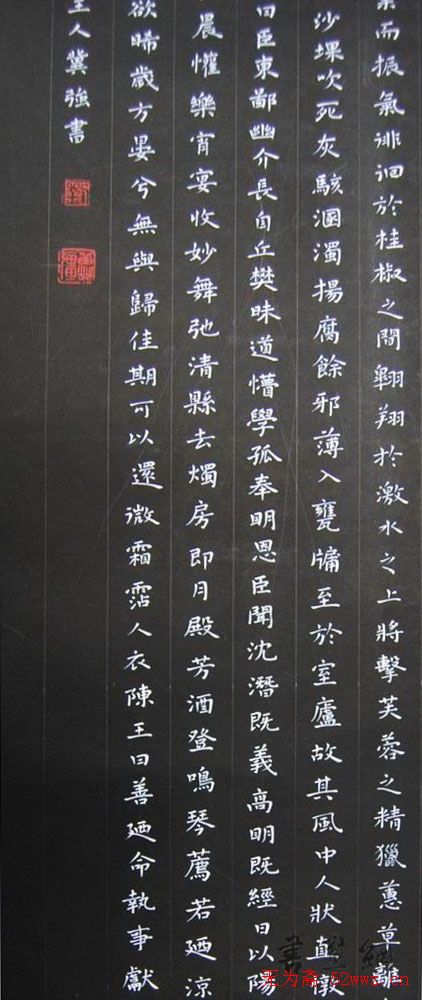 而振氣徘徊於桂椒之間翱翔於激水之上將擊芙蓉之精獵蕙草離
沙堁吹死灰駭溷濁揚腐餘邪薄入甕牖至於室廬故其風中人狀直憞
曰臣東鄙幽介長自丘樊昧道懵學孤奉明恩臣聞沈潛既義高明既經日以陽
晨懽樂宵宴收妙舞弛清縣去燭房即月殿芳酒登鳴琴薦若廼涼
欲晞歲方晏兮無與歸佳期可以還微霜霑人衣陳王曰善廼命執事獻
主人冀強書
书画网
无为斋:52wwz.cn